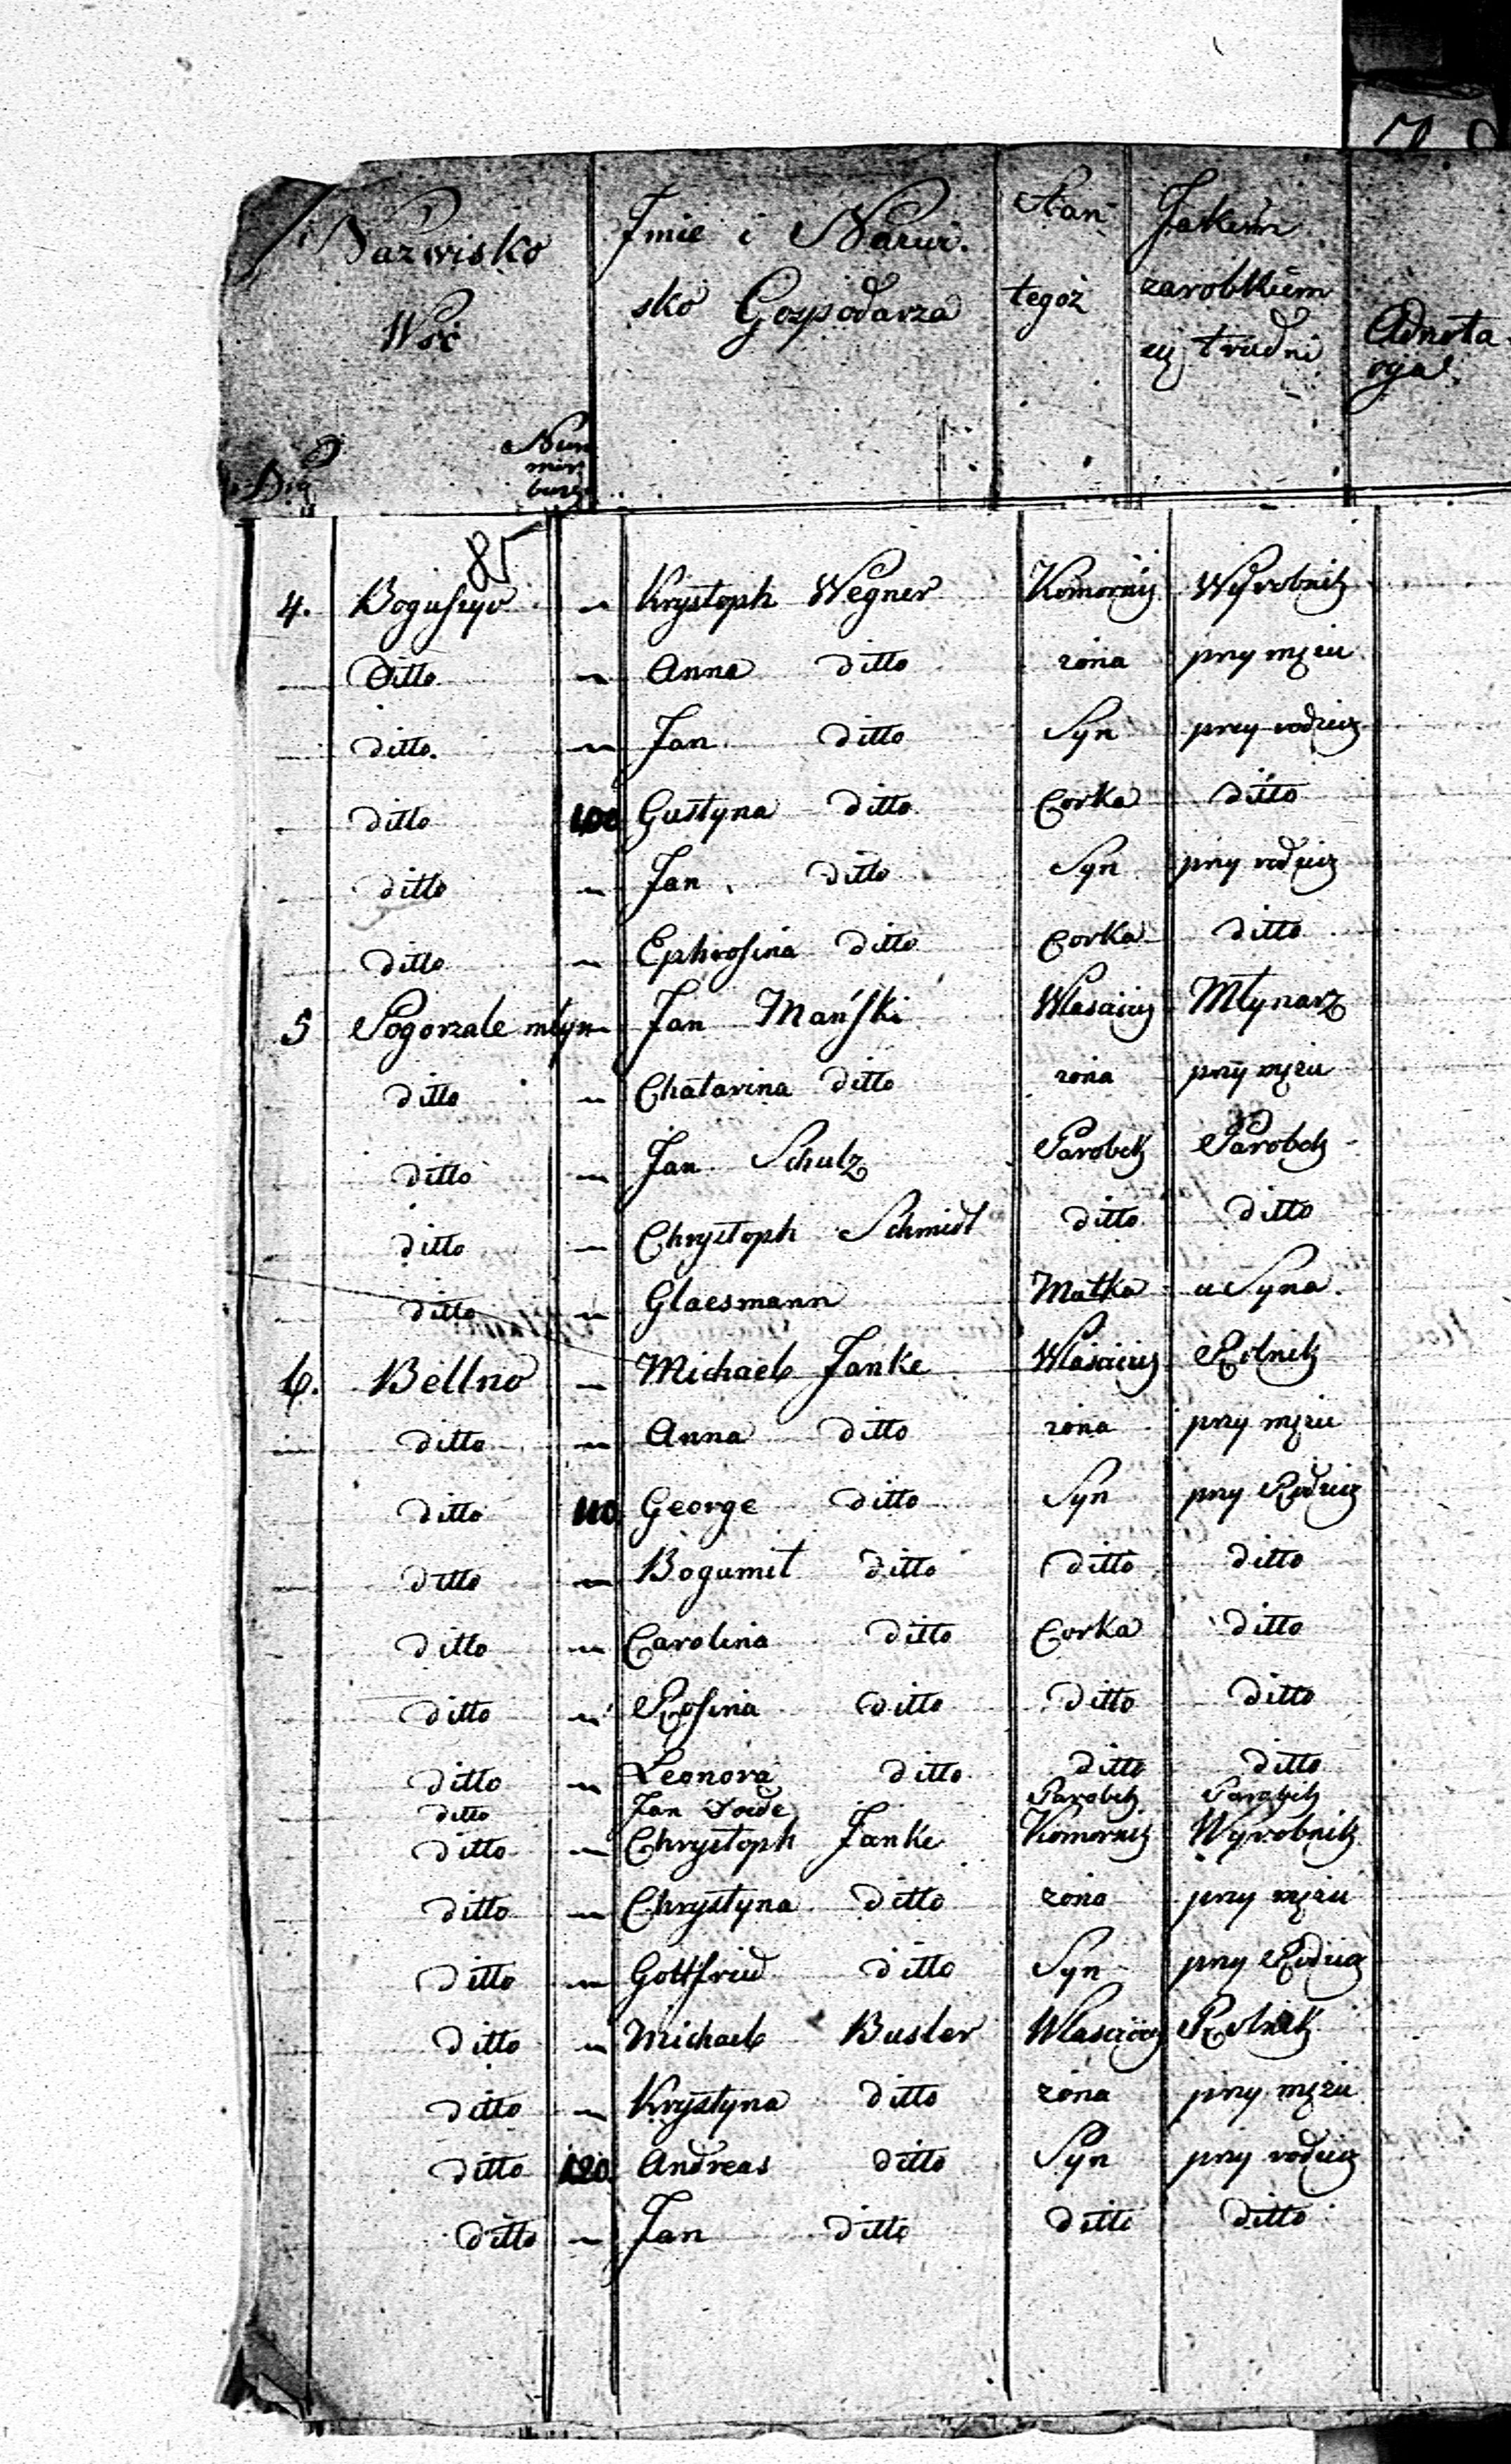 Nazwisko Wsi
Imie i Nazwi-
sko Gospodarza
Stan
tegoż
Jakiem
zarobkiem
się trudni
Adnota
cya
Num
85
4. Bogussyc ~ Krystoph Wegner Komornik Wyrobnik
Ditto ~ Anna ditto żona przy mężu
ditto. ~ Jan ditto Syn przy rodzicz
ditto 100 Gustyna ditto Corka ditto
ditto ~ Jan ditto Syn przy rodzicz
ditto ~ Ephrosina ditto Corka ditto
5 Pogorzałe młyn ~ Jan Mański Własciciel Młynarz
ditto ~ Chatarina ditto żona przy mężu
ditto ~ Jan Schulz Parobek Parobek
ditto ~ Chrystoph Schmidt ditto ditto
ditto ~ Glaesmann Matka u Syna.
6. Bellno ~ Michael Janke Własciciel Rolnik
ditto ~ Anna ditto żona przy mężu
ditto 110 George ditto Syn przy Rodzicz
ditto ~ Bogumił ditto ditto ditto
ditto ~ Carolina ditto Corka ditto
ditto ~ Rosina ditto ditto ditto
ditto ~ Leonora ditto ditto ditto
ditto Jan Parobek Parobek
ditto ~ Chrystoph Janke Komornik Wyrobnik
ditto ~ Chrystyna ditto żona przy mężu
ditto ~ Gottfried ditto Syn przy Rodzicz
ditto ~ Michael Busler Własciciel Rolnik
ditto ~ Krystyna ditto żona przy mężu
ditto 120 Andreas ditto Syn przy rodzicz
ditto ~ Jan ditto ditto ditto